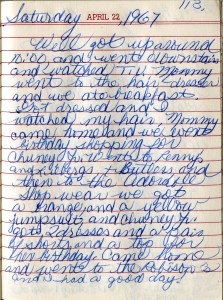 113.
Saturday APRIL 22, 1967
Well got up around
10:00, and went downstairs
and watched T.V. Mommy
went to the hair dresser
and we ate breakfast.
Got dressed and I
watched my hair. Mommy
came home and we went
birthday shopping for
We went to Penny
and + Butlers and
then to the Adorable
Shop wear we got
a orange and a yellow
jumpsuit and
got 2 dresses and a pair
of shorts and a top for
her birthday. Came home
and went to the
and had a good day.